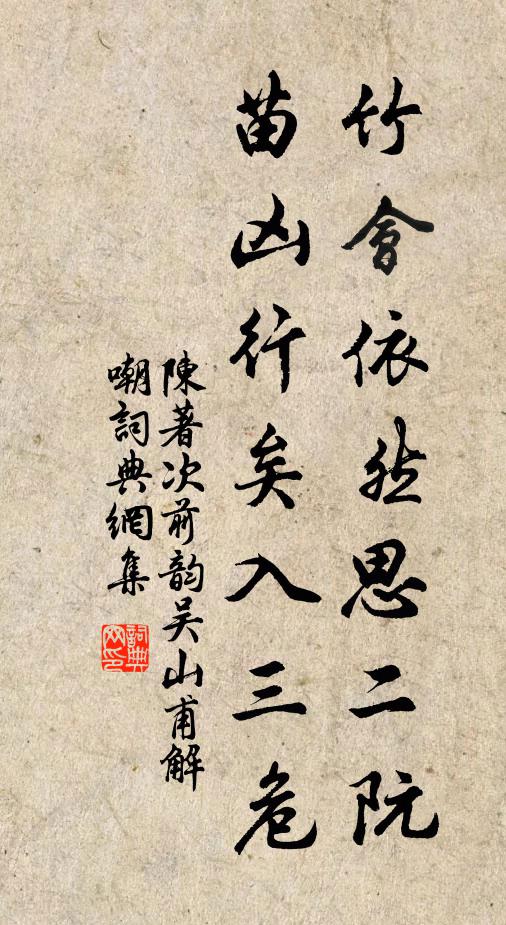 竹會依然思二阮
苗凶行矣入三危
陳著次前韵吴山甫解
嘲詞典網集
詞典
网印